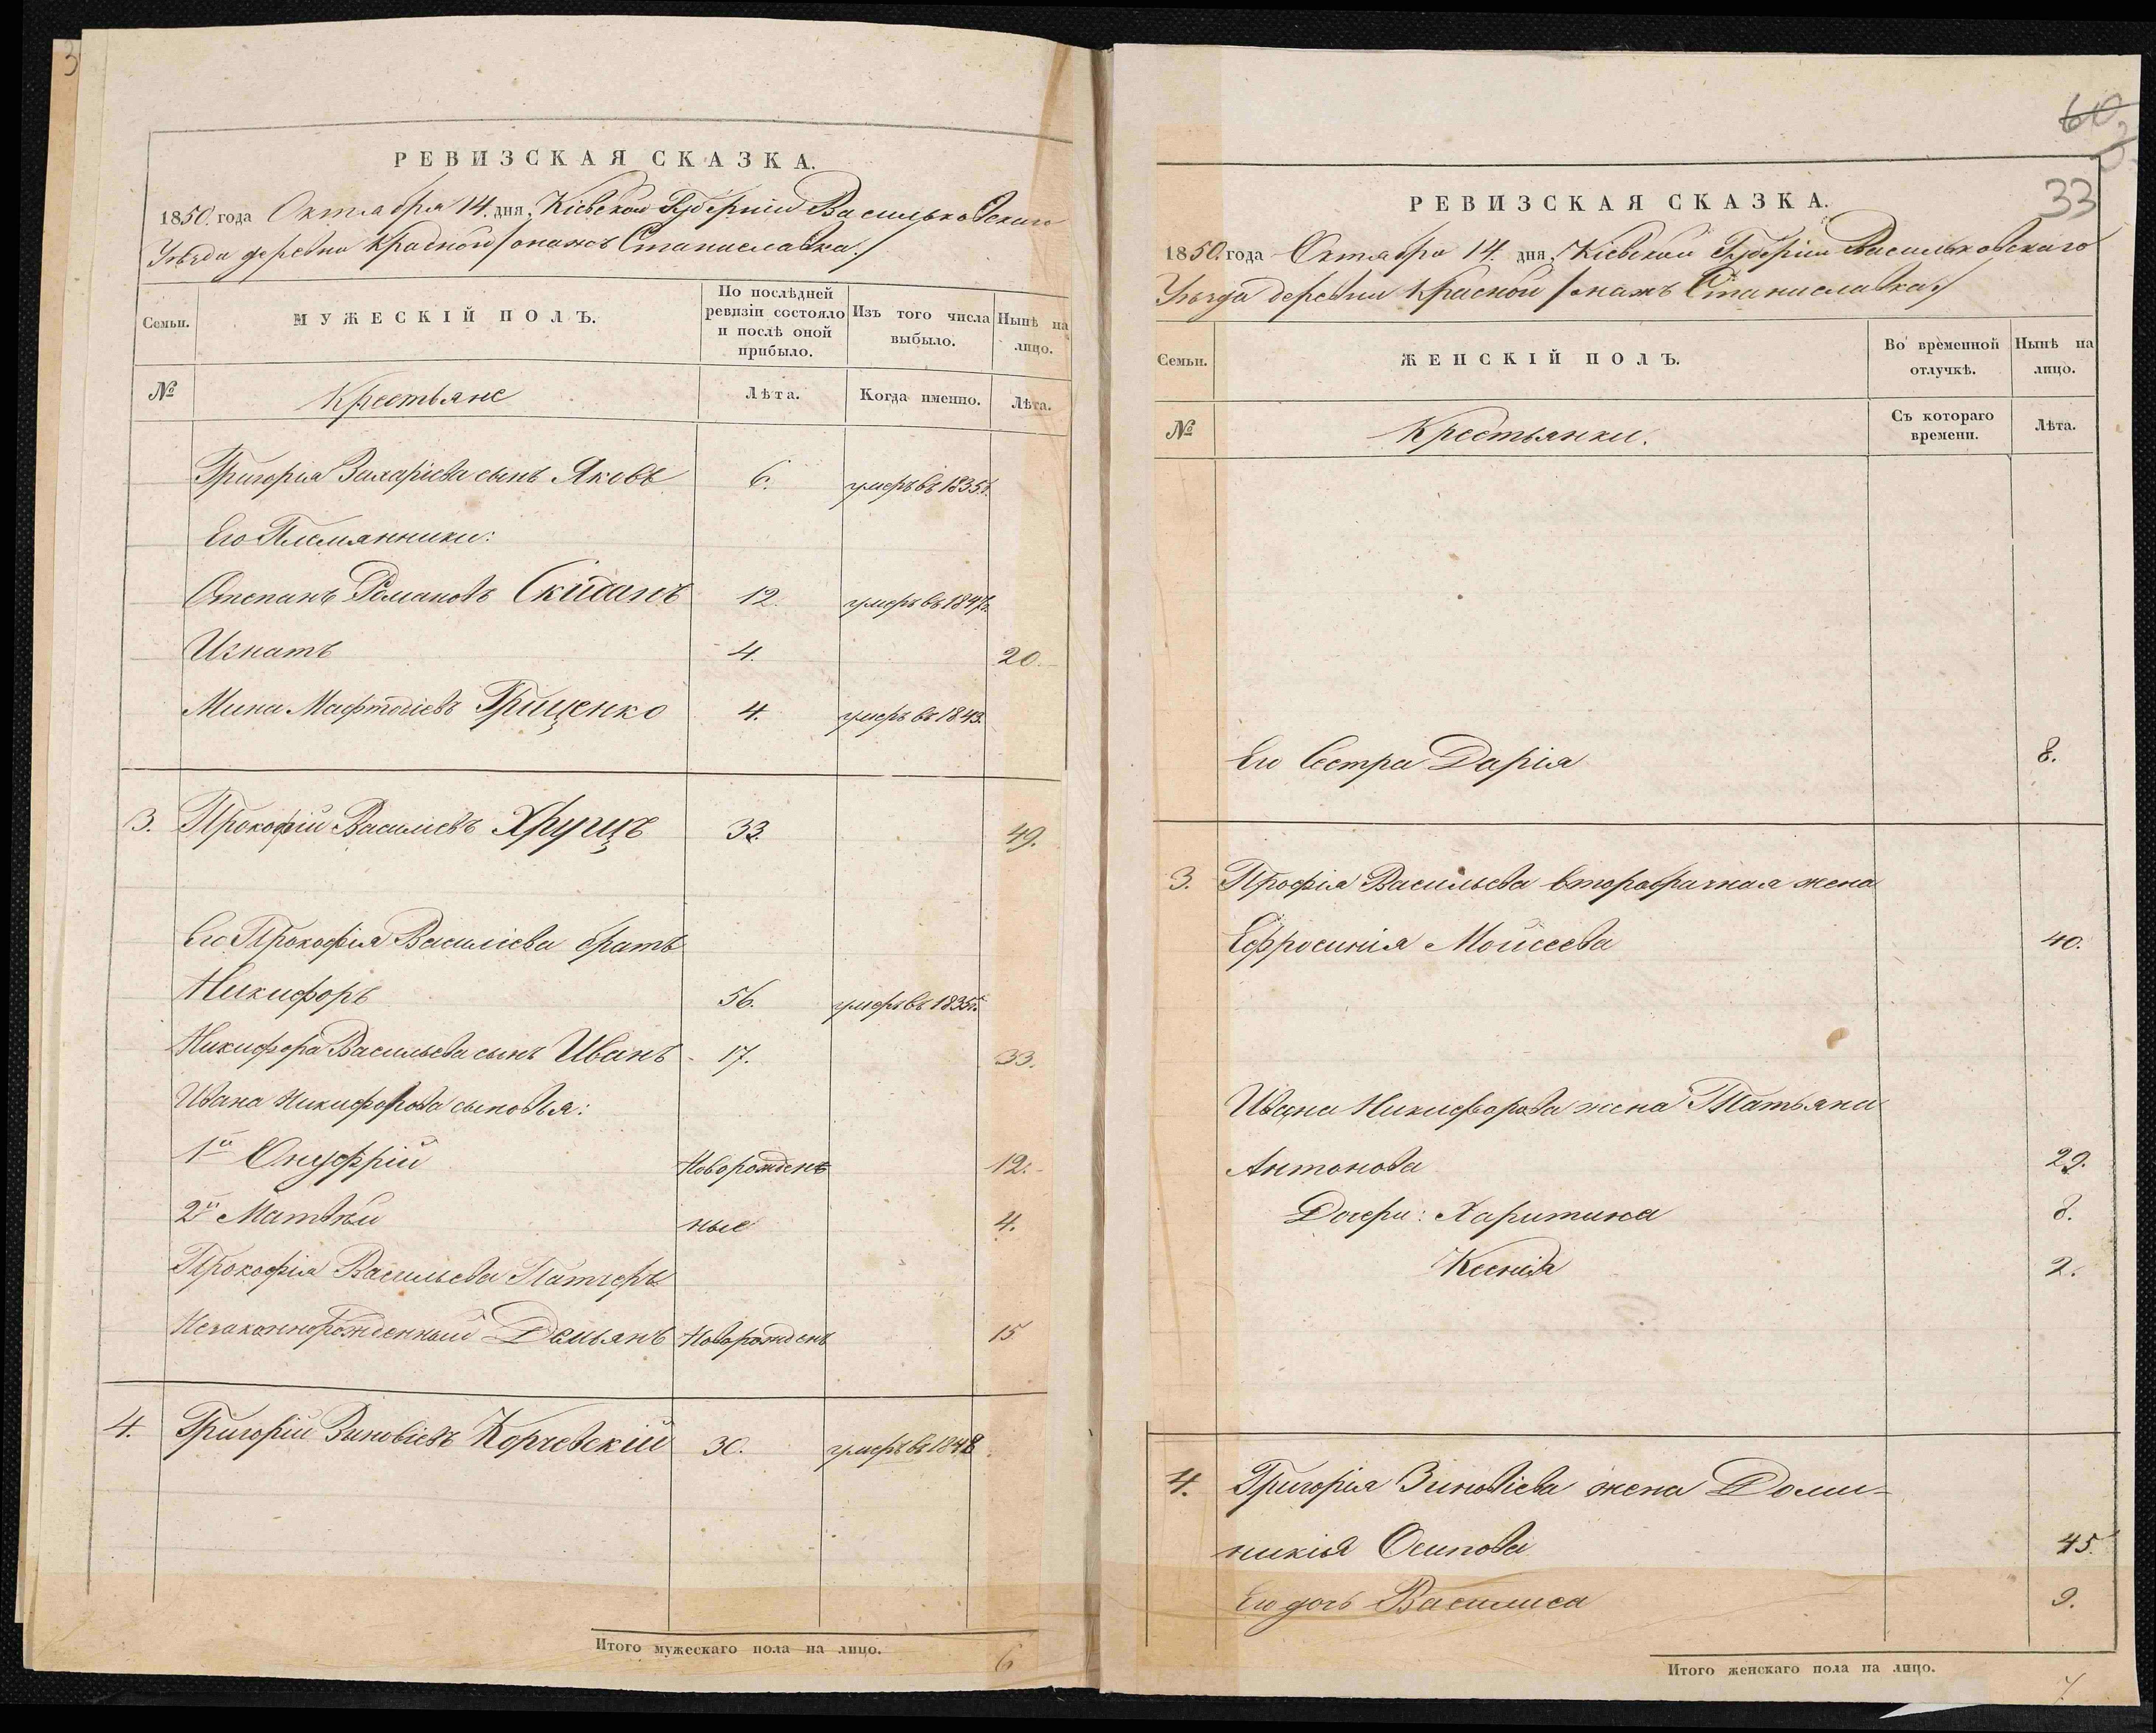 3
РЕВИЗСКАЯ СКАЗКА.
1850. года Октября 14. дня, Кіевской Губерніи Васильковскаго
Уѣзда деревни Красной /онажъ Станиславка./
Семьи.
МУЖЕСКІЙ ПОЛЪ.
По послѣдней ревизіи состояло и послѣ оной прибыло.
Изъ того числа выбыло.
Нынѣ на лицо.
№
Крестьяне
Лѣта.
Когда именно.
Лѣта.
Григорія Захаріева сынъ Яковъ 6. умеръ въ 1835 г.
Его Племянники:
Степанъ Романовъ Скиданъ 12. умеръ въ 1847 г.
Игнатъ 4. 20.
Мина Мафтеіевъ Грищенко 4. умеръ въ 1843.
3. Прокофій Василіевъ Хрущъ 33. 49.
Его Прокофія Василіева братъ
Никифоръ 56. умеръ въ 1835 г.
Никифора Васильева сынъ Иванъ 17. 33.
Ивана Никифорова сыновья:
1й Онуфрій Новорожден 12.
2й Матвѣй ные 4.
Прокофія Васильева
Незаконнорожденный Демьянъ Новорожден 15
4. Григорій Зиновіевъ Корчевскій 30. умеръ въ 1848
Итого мужескаго пола на лицо. 6
60
33
РЕВИЗСКАЯ СКАЗКА.
1850. года Октября 14. дня, Кіевской Губерніи Васильковскаго
Уѣзда деревни Красной /онажъ Станиславка./
Семьи.
ЖЕНСКІЙ ПОЛЪ.
Во временной отлучкѣ.
Нынѣ на лицо.
№
Крестьянки.
Съ котораго времени.
Лѣта.
Его Сестра Дарія 8.
3. Профія Васильева второбрачная жена
Ефросинія Мойсеева 40.
Ивана Никифорова жена Татьяна
Антонова 29.
Дочери: Харитина 8.
Ксенія 2.
4. Григорія Зиновіева жена Доми-
никія Осипова 45.
Его дочь Василиса 9.
Итого женскаго пола на лицо. 7